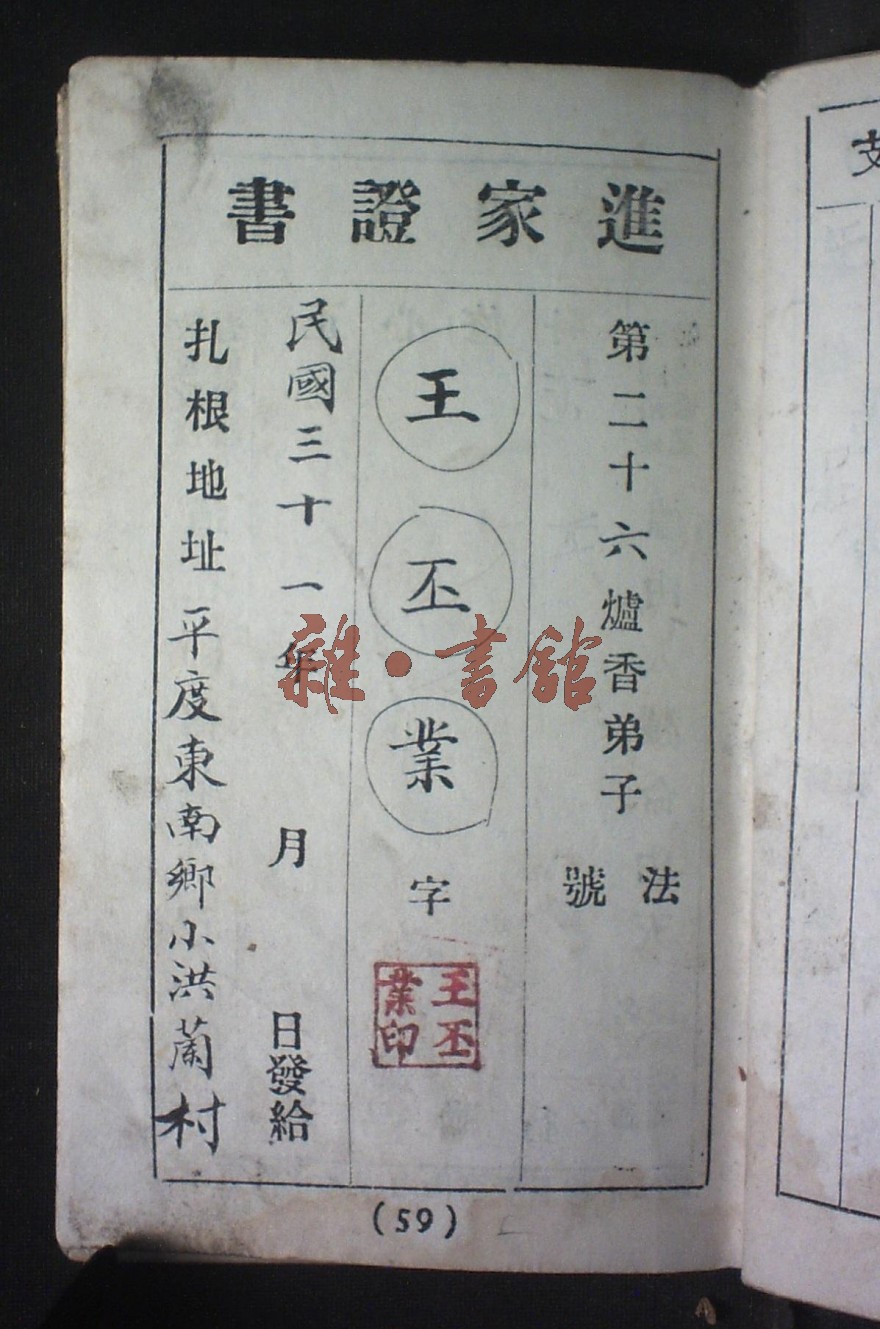 進家證書
第二十六爐香弟子
法號
王丕業字
王丕業印
民國三十一年 月 日發給
扎根地址 平度東南鄉小洪蘭村
(59)
雜·書館